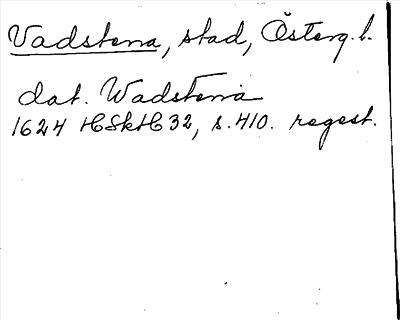 Vadstena, stad, Österg.l.
dat. Wadstena
1624 HSkH 32, s.410. regest.